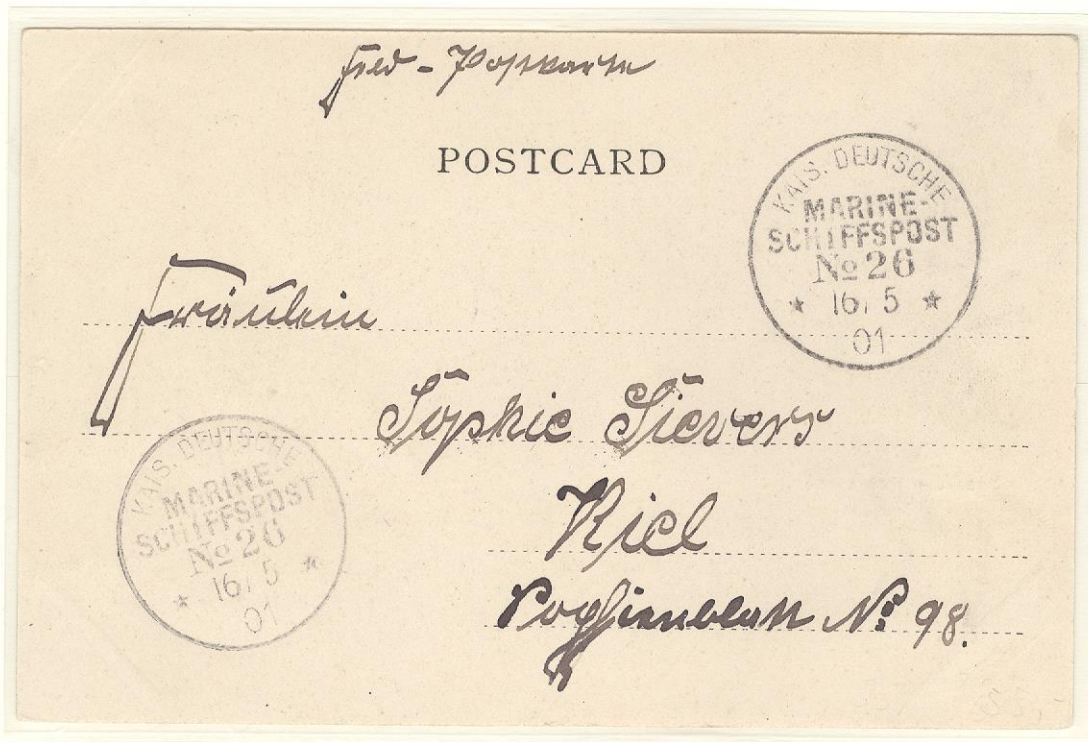 Feld-Postkarte
POSTCARD
KAIS. DEUTSCHE
MARINE-
SCHIFFSPOST
No 26
* 16/5 *
01
Fräulein
Sophie Sievers
KAIS. DEUTSCHE
MARINE-
SCHIFFSPOST
No 26
* 16/5 *
01
Kiel
No 98.